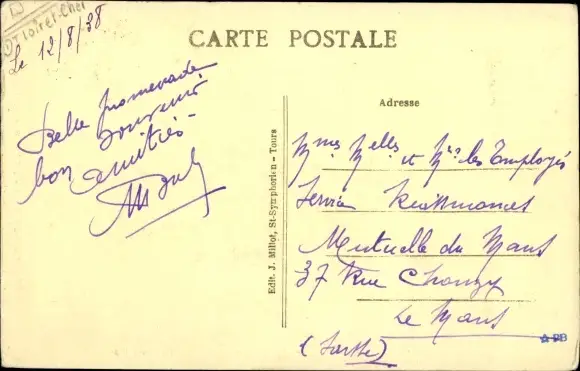 Loir et Cher
Le 12/8/38
CARTE POSTALE
Belle promenade
bon souvenir
amitiés
Edit. J. Millot, St-Symphorien - Tours
Adresse
Mmes Melles et Mrs les Employés
Service
Mutuelle du Mans
37 Rue Chanzy
Le Mans
(Sarthe)